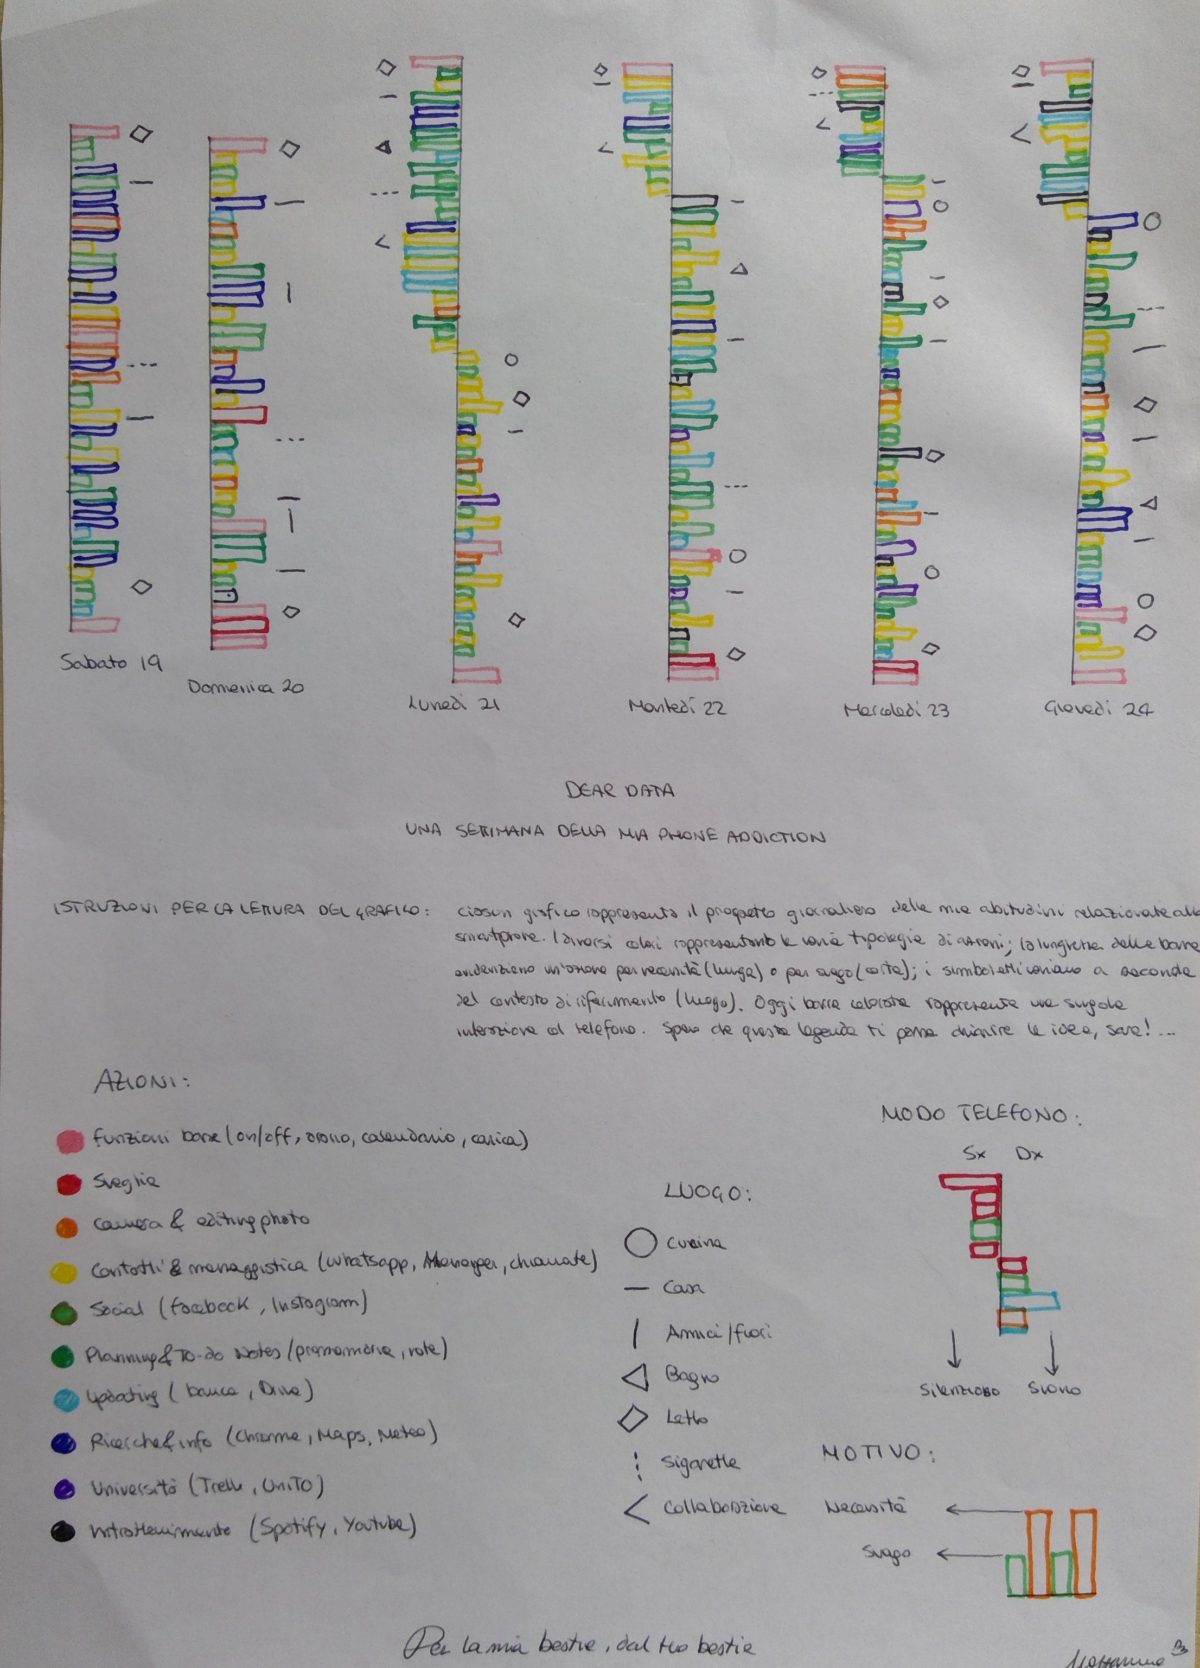 Sabato 19
Domenica 20
Lunedì 21
Martedì 22
Mercoledì 23
Giovedì 24
DEAR DATA
UNA SETTIMANA DELLA MIA PHONE ADDICTION
ISTRUZIONI PER LA LETTURA DEL GRAFICO: ciascun grafico rappresenta il prospetto giornaliero delle mie abitudini relazionate allo
smartphone. I diversi colori rappresentano le varie tipologie di azioni; la lunghezza delle barre
evidenziano un'azione per necessità (lunga) o per svago (corta); i simboletti variano a seconda
del contesto di riferimento (luogo). Ogni barra colorata rappresenta una singola
interazione col telefono. Spero che questa legenda ti possa chiarire le idee, !...
AZIONI:
funzioni base (on/off, orario, calendario, carica)
Sveglia
Camera & editing photo
Contatti & messaggistica (Whatsapp, Messenger, chiamate)
Social (facebook, Instagram)
Planning & To-do Notes (promemoria, note)
Updating (banca, Drive)
Ricerche & info (Chrome, Maps, Meteo)
Università (Trello, UniTO)
Intrattenimento (Spotify, Youtube)
LUOGO:
Cucina
Casa
Amici/fuori
Bagno
Letto
Sigarette
Collaborazione
MODO TELEFONO:
Sx Dx
Silenzioso Suono
MOTIVO:
Necessità
Svago
Per la mia bestie, dal tuo bestie